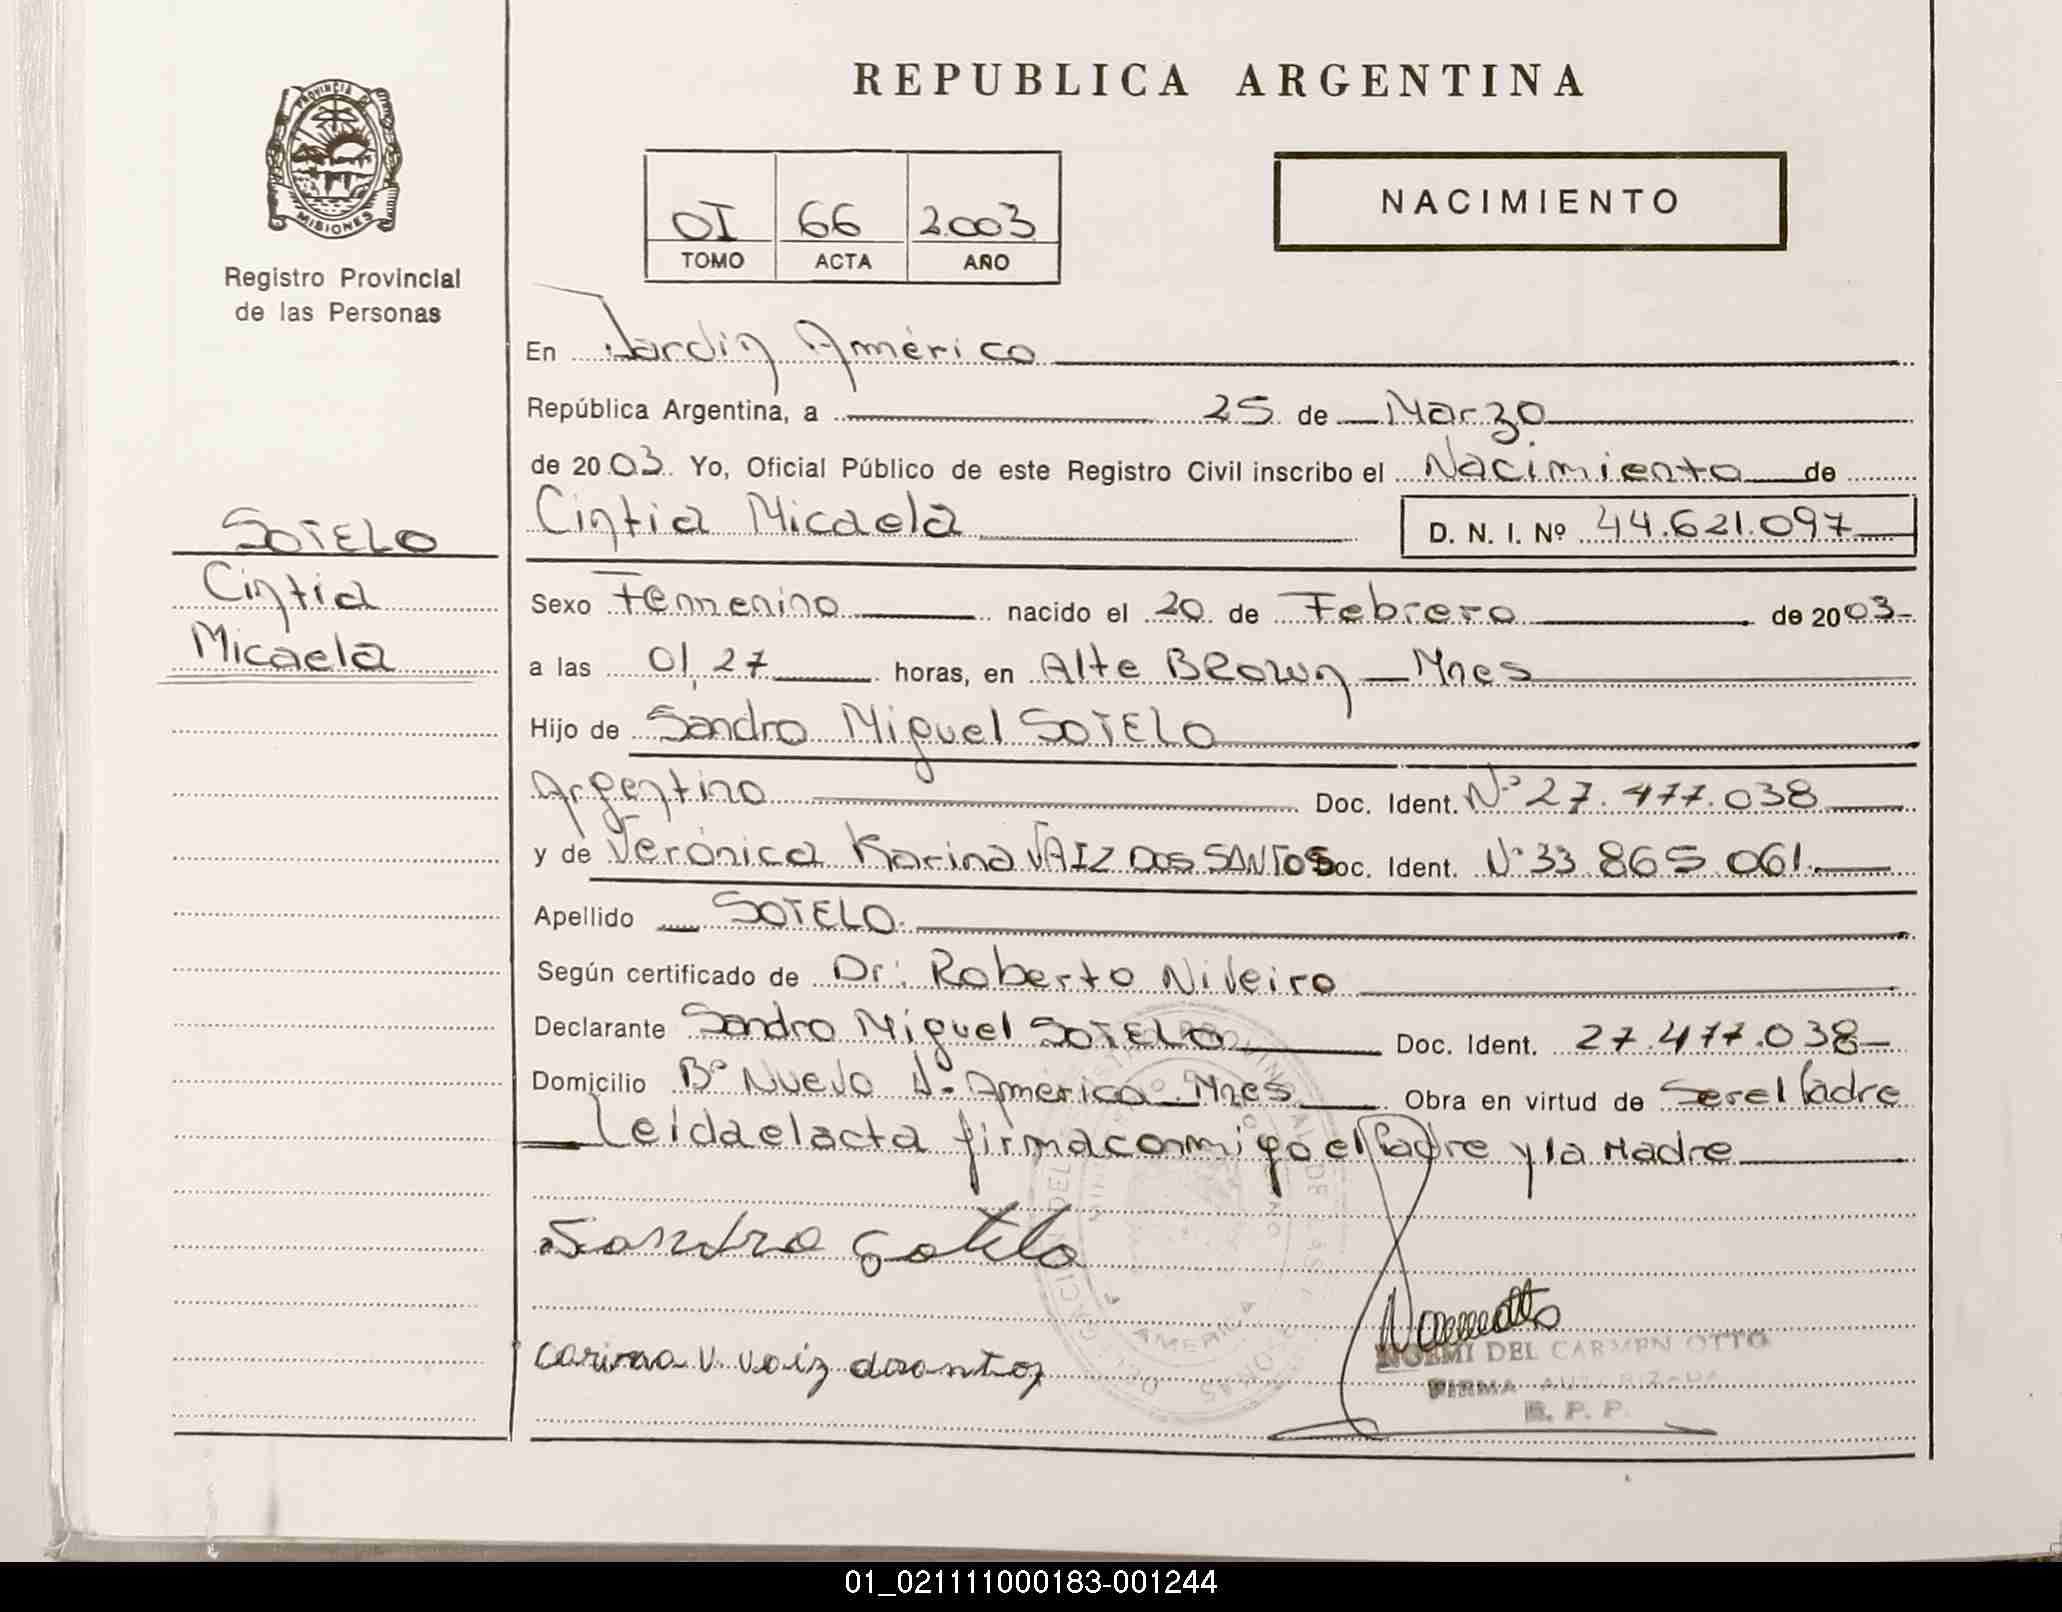 REPUBLICA ARGENTINA
PROVINCIA DE
MISIONES
Registro Provincial
de las Personas
01 66 2.003
TOMO ACTA AÑO
NACIMIENTO
En Jardin América
República Argentina, a 25 de Marzo
de 2003. Yo, Oficial Público de este Registro Civil inscribo el Nacimiento de
Cintia Micaela D. N. I. Nº 44.621.097
SOTELO
Cintia
Micaela
Sexo Femenino nacido el 20 de Febrero de 2003
a las 01,27 horas, en Alte Brown - Mnes
Hijo de Sandro Miguel SOTELO
Argentino Doc. Ident. Nº 27.477.038
y de Verónica Karina VAIZ DOS SANTOS Doc. Ident. Nº 33.865.061.
Apellido SOTELO.
Según certificado de Dr: Roberto Niveiro
Declarante Sandro Miguel SOTELO Doc. Ident. 27.477.038
Domicilio Bº Nuevo J. América - Mnes Obra en virtud de Ser el Padre
Leída el acta firma conmigo el Padre y la Madre
Sandro Sotelo
carina v. vaiz dosantos
NOEMI DEL CARMEN OTTO
FIRMA AUTORIZADA
R. P. P.
01_021111000183-001244